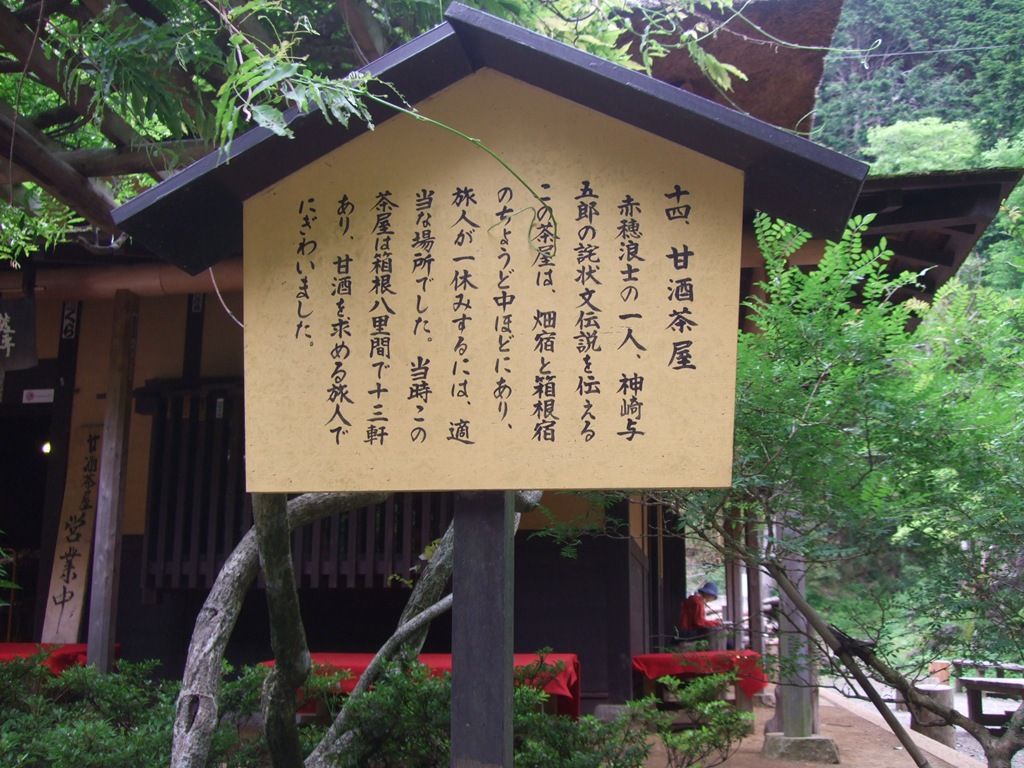 十四、甘酒茶屋
赤穂浪士の一人、神崎与
五郎の詫状文伝説を伝える
この茶屋は、畑宿と箱根宿
のちょうど中ほどにあり、
旅人が一休みするには、適
当な場所でした。当時この
茶屋は箱根八里間で十三軒
あり、甘酒を求める旅人で
にぎわいました。
甘酒茶屋営業中